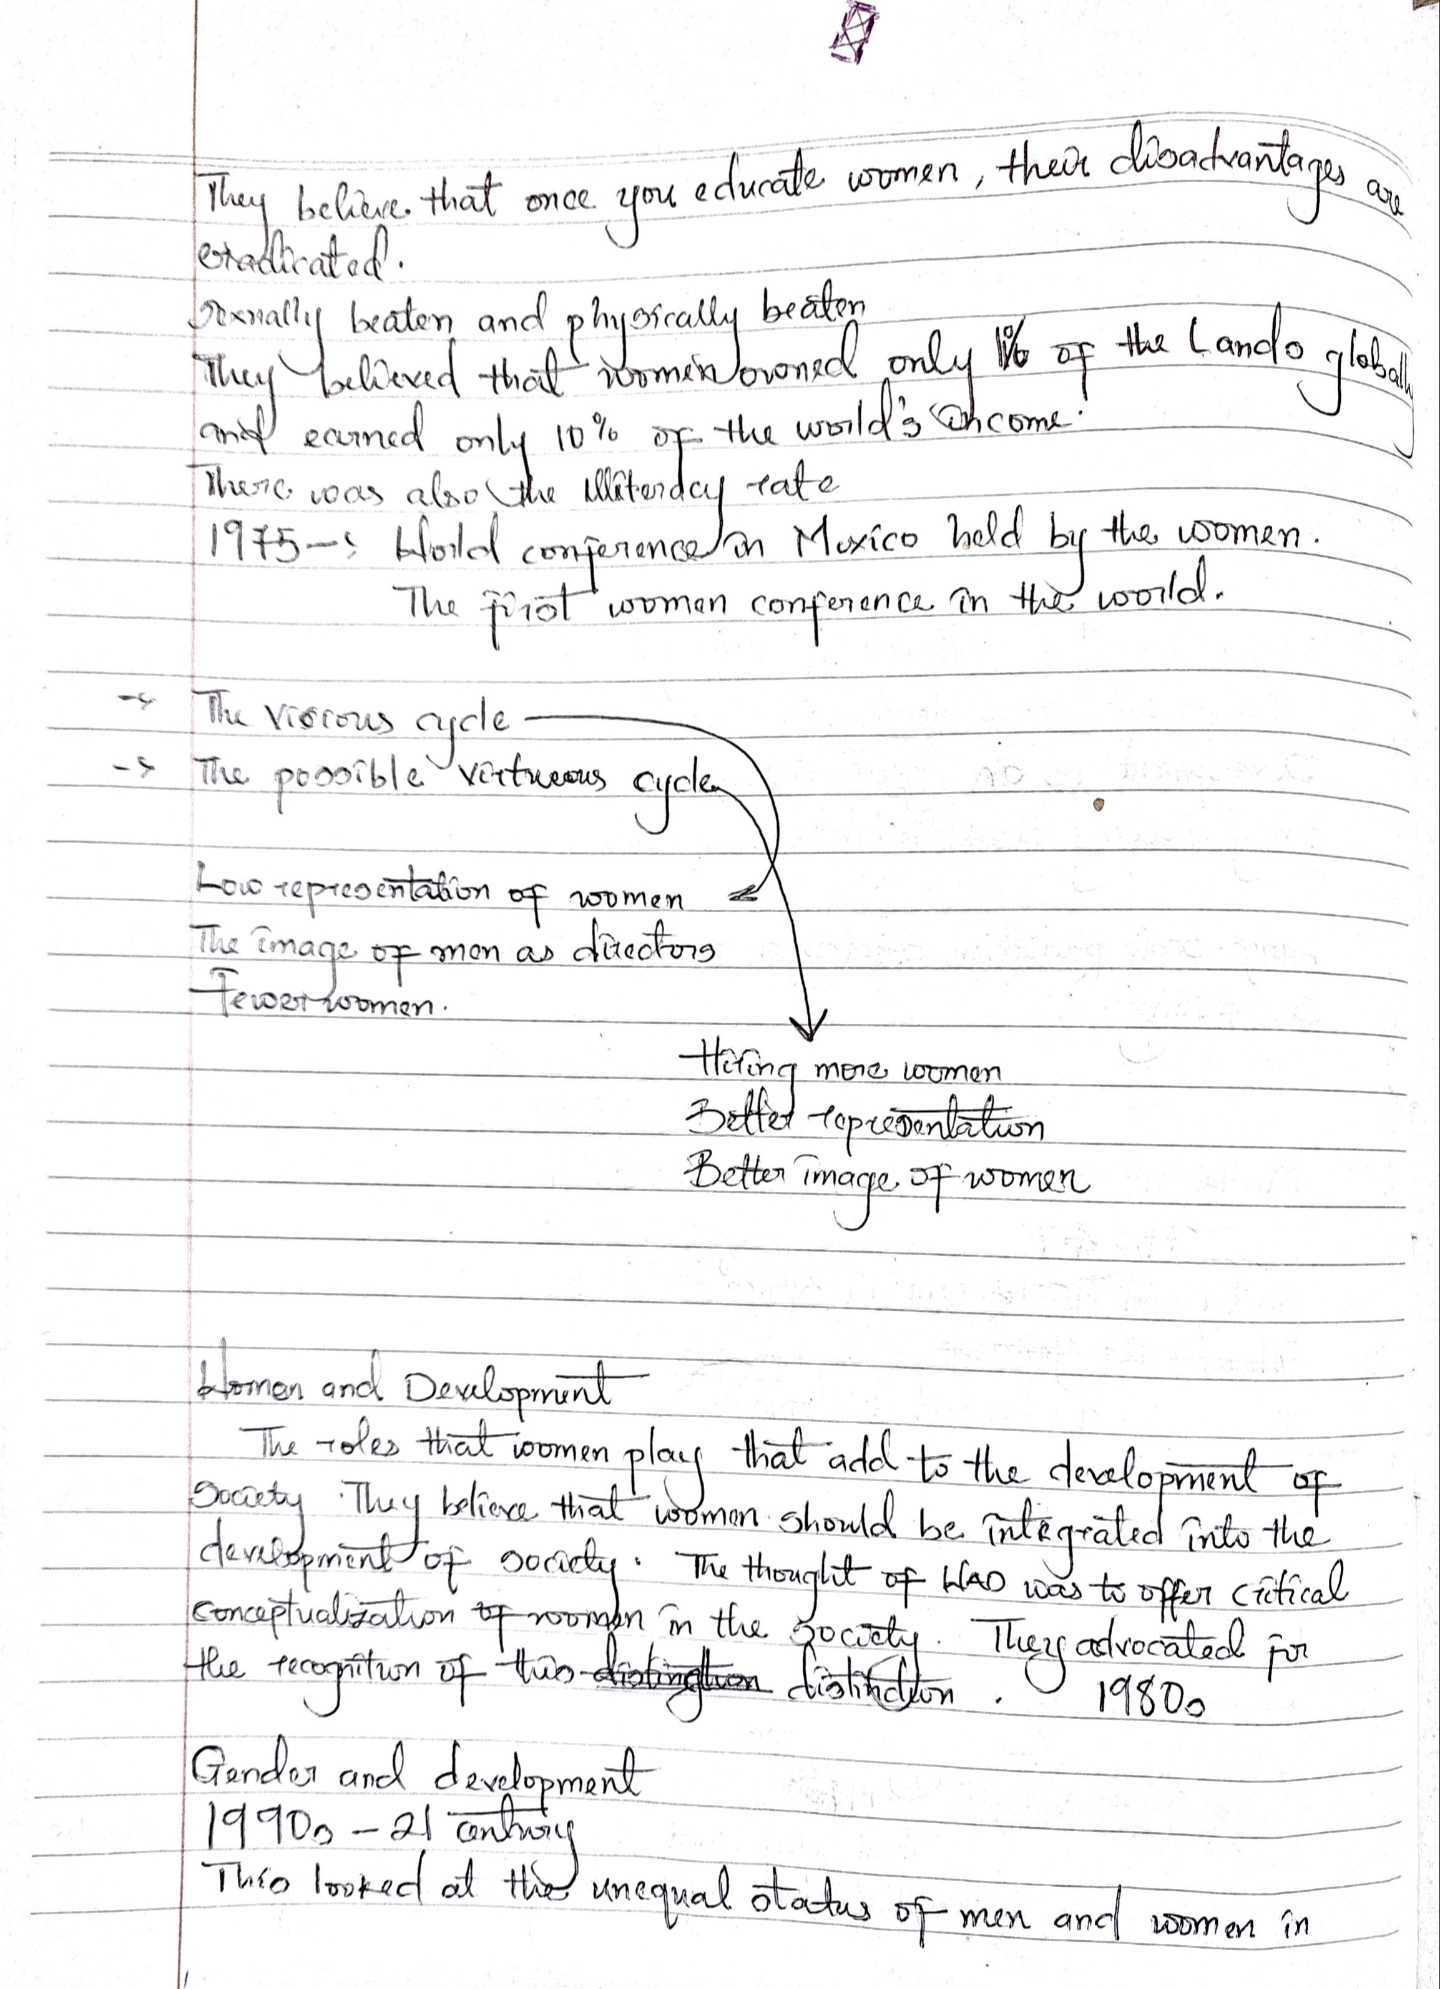 They believe that once you educate women, their disadvantages are
eradicated.
sexually beaten and physically beaten
They believed that women owned only 1% of the Lands globally
and earned only 10% of the world's income.
There was also the illiteracy rate
1975 → World conference in Mexico held by the women.
The first women conference in the world.
→ The viscous cycle
→ The possible virtueous cycle
Low representation of women
The image of men as directors
Fewer women.
Hiring more women
Better representation
Better image of women
Women and Development
The roles that women play that add to the development of
society. They believe that women should be integrated into the
development of society. The thought of WAD was to offer critical
conceptualization of women in the society. They advocated for
the recognition of this distinction.
1980s
Gender and development
1990s - 21 century
This looked at the unequal status of men and women in